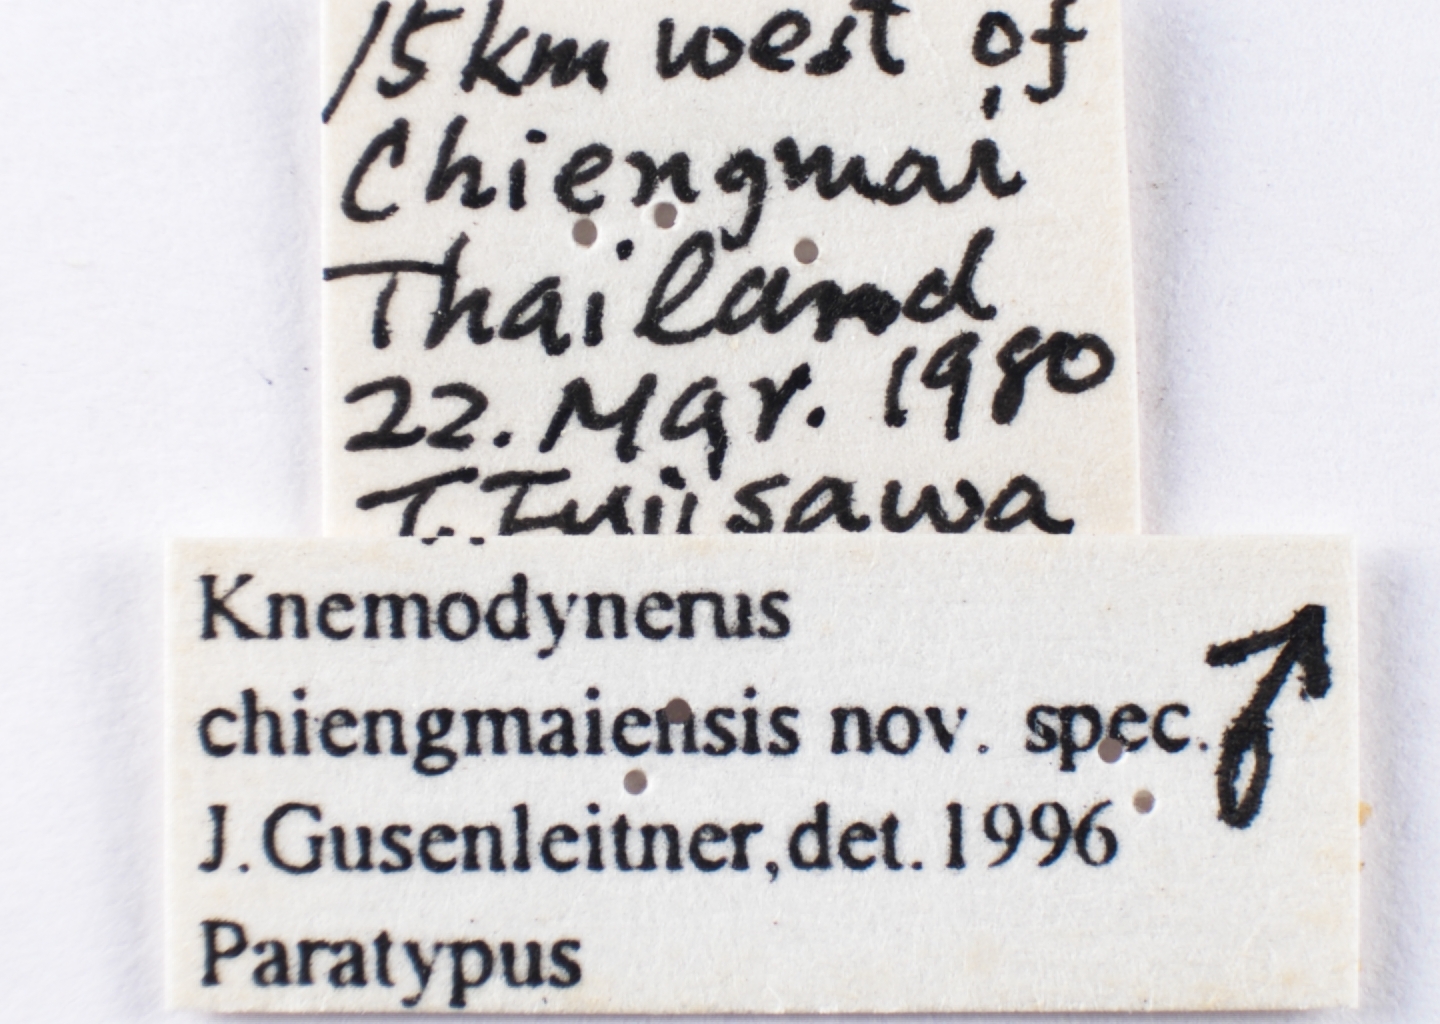 15km west of
Chiengmai
Thailand
22. Mar. 1980
T. Fujisawa
Knemodynerus
chiengmaiensis nov. spec. ♂
J. Gusenleitner, det. 1996
Paratypus